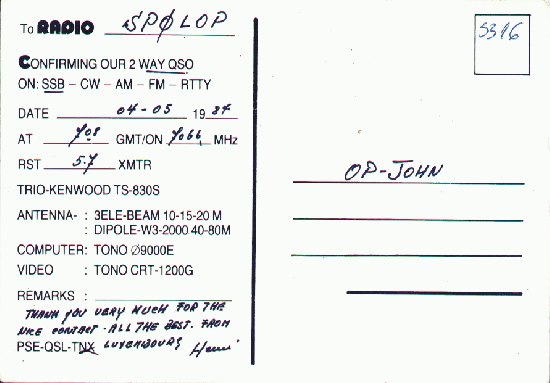 To RADIO SPØLOP
CONFIRMING OUR 2 WAY QSO
ON: SSB - CW - AM - FM - RTTY
DATE 04-05 1987
AT GMT/ON 7066 MHz
RST 57 XMTR
TRIO-KENWOOD TS-830S
ANTENNA- : 3ELE-BEAM 10-15-20 M
: DIPOLE-W3-2000 40-80M
COMPUTER: TONO Ø9000E
VIDEO : TONO CRT-1200G
REMARKS :
THANK YOU VERY MUCH FOR THE
NICE CONTACT - ALL THE BEST. FROM
PSE-QSL-TNX LUXEMBOURG Henri
5316
OP-JOHN